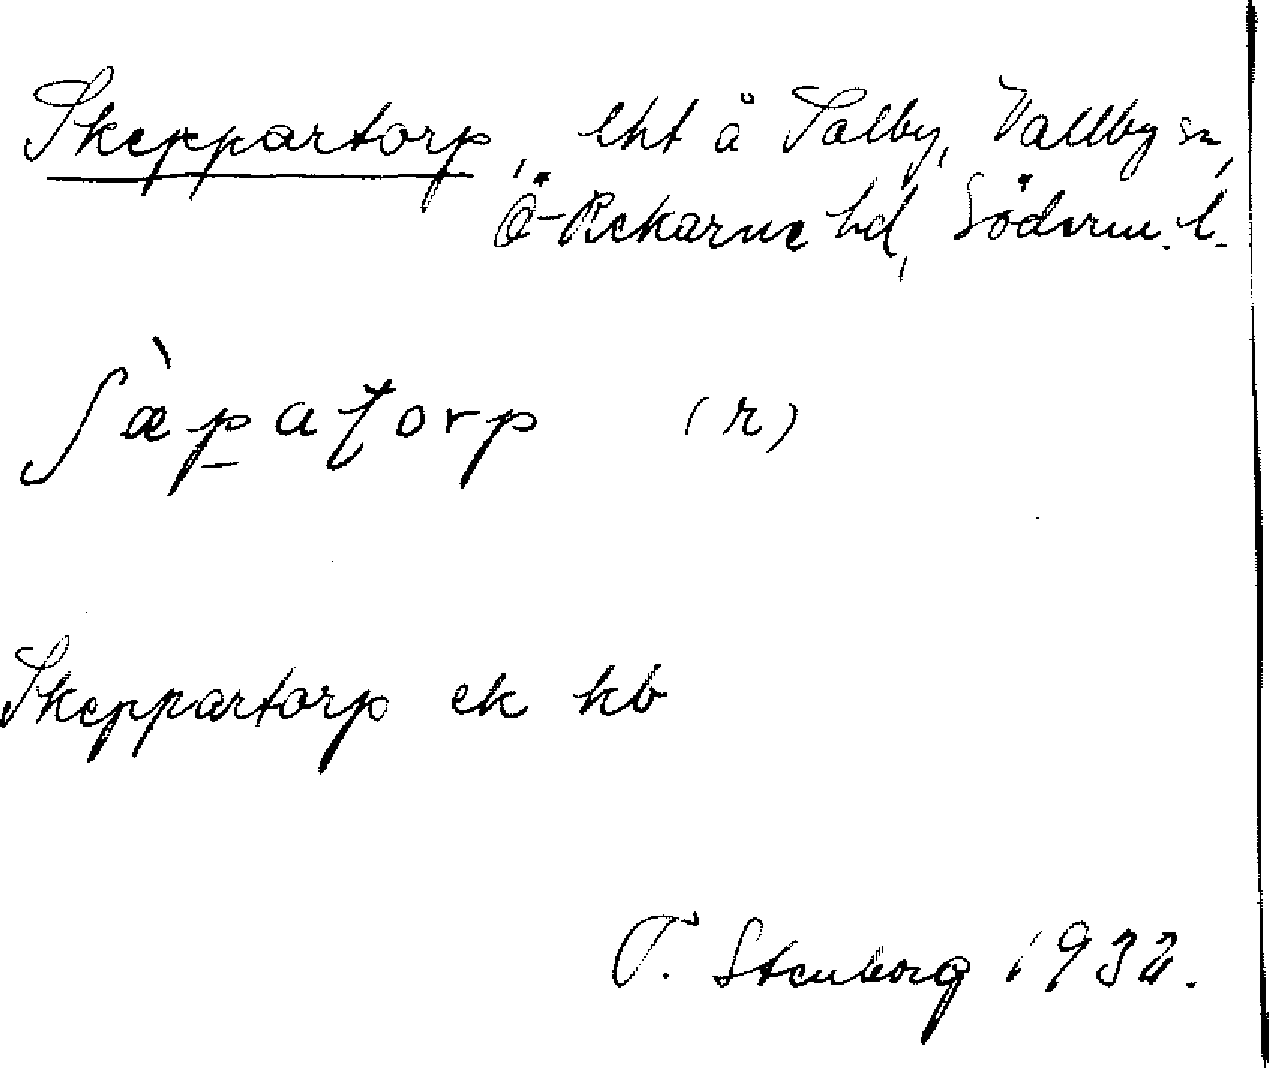 Skeppartorp, lht å Salby, Vallby sn,
Ö-Rekarne hd, Söderm. l.
ʃæ̀patorp (r)
Skeppartorp ek kb
T. Stenborg 1932.